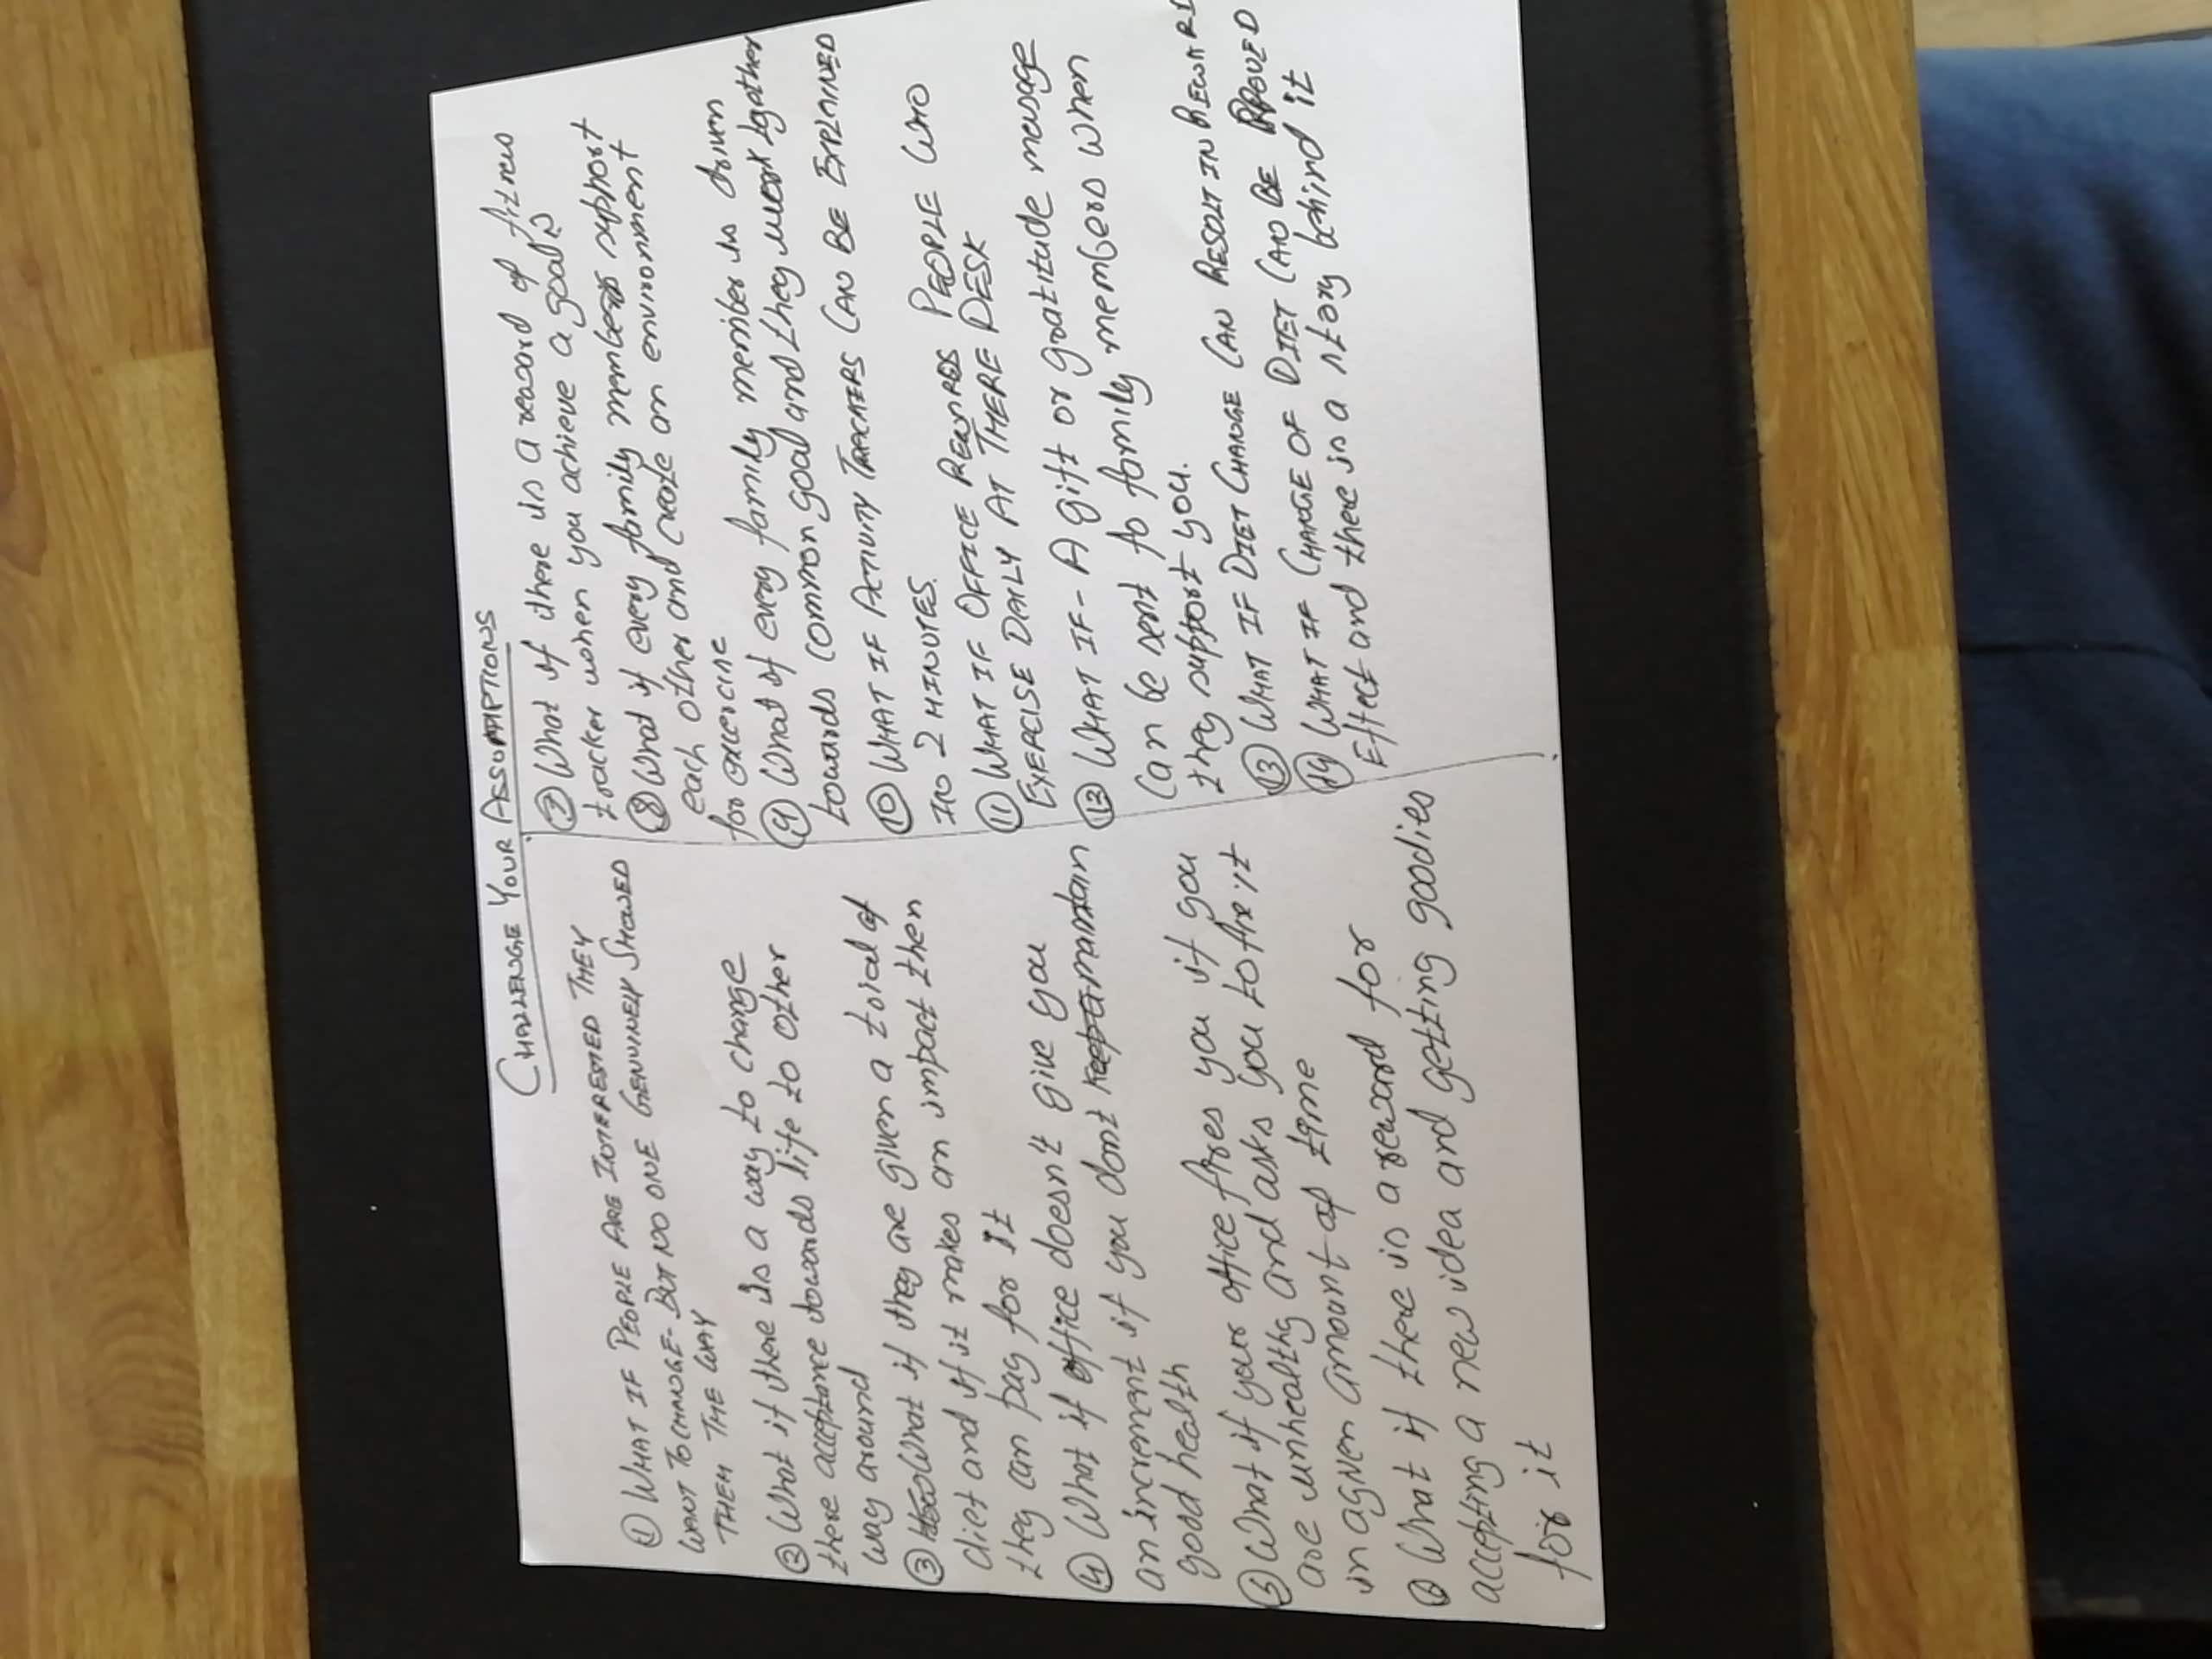 CHALLENGE YOUR ASSUMPTIONS
① WHAT IF PEOPLE ARE INTERESTED THEY
WANT TO CHANGE- BUT NO ONE GENUINELY SHOWED
THEM THE WAY
② What if there is a way to change
there acceptance towards life to other
way around
③ How What if they are given a trial of
diet and if it makes an impact then
they can pay for it
④ What if office doesn't give you
an increment if you dont keep a maintain
good health
⑤ What if your office fires you if you
are unhealthy and asks you to fix it
in a given amount of time
⑥ What if there is a reward for
accepting a new idea and getting goodies
for it
⑦ What if there is a reward of fitness
tracker when you achieve a goal?
⑧ What if every family members support
each other and create an environment
for excercise
⑨ What if every family member is driven
towards common goal and they work tgether
⑩ WHAT IF ACTIVITY TRACKERS CAN BE EXPLAINED
IN 2 MINUTES.
⑪ WHAT IF OFFICE REWARDS PEOPLE WHO
EXERCISE DAILY AT THERE DESK
WHAT IF- A gift or gratitude message
can be sent to family members when
they support you.
⑬ WHAT IF DIET CHANGE CAN RESULT IN REWARD
⑭ WHAT IF CHANGE OF DIET CAN BE PROVED
Effect and there is a story behind it